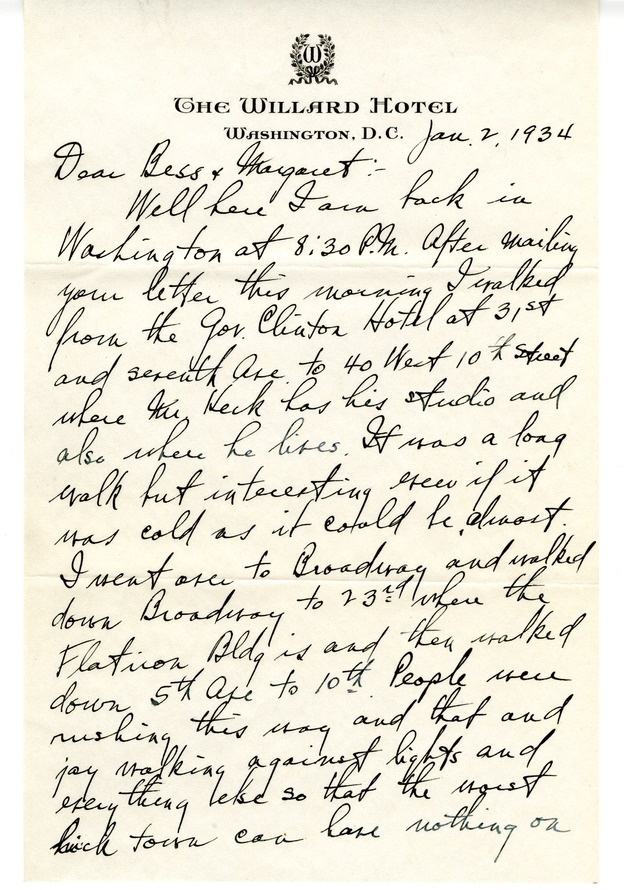 W
THE WILLARD HOTEL
WASHINGTON, D.C. Jan. 2, 1934
Dear Bess & Margaret:-
Well here I am back in
Washington at 8:30 P.M. After mailing
your letter this morning I walked
from the Gov. Clinton Hotel at 31st
and seventh Ave. to 40 West 10th street
where Mr. Keck has his studio and
also where he lives. It was a long
walk but interesting even if it
was cold as it could be, almost.
I went over to Broadway and walked
down Broadway to 23rd where the
Flatiron Bldg is and then walked
down 5th Ave to 10th. People were
rushing this way and that and
jay walking against lights and
everything else so that the worst
hick town can have nothing on